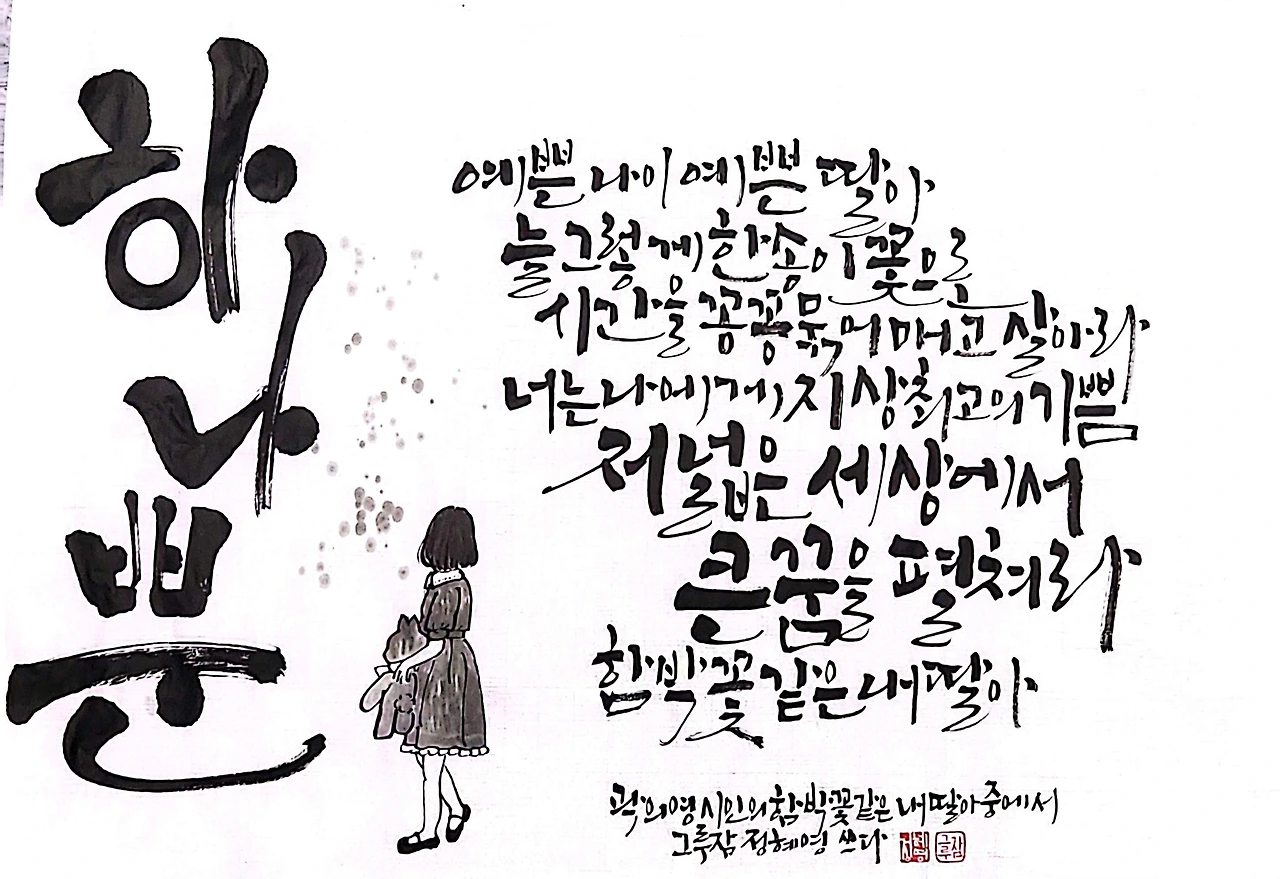 하나뿐
예쁜 나이 예쁜 딸아
늘 그렇게 한송이 꽃으로
시간을 꽁꽁 묶어 매고 살아라
너는 나에게 지상 최고의 기쁨
저 넓은 세상에서
큰 꿈을 펼쳐라
함박꽃 같은 내 딸아
곽의영 시인의 함박꽃 같은 내 딸아 중에서
그루잠 정혜영 쓰다